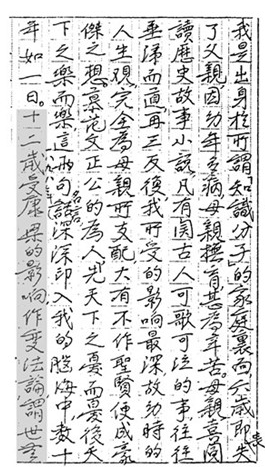 我是出身於所謂"知識分子"的家庭裏六歲即失
了父親因幼年多病母親撫育甚為辛苦母親喜閱
讀歷史故事小說凡有關古人可歌可泣的事往往
垂涕而道再三反復我所受的影响最深故幼時的
人生觀完全為母親所支配大有不作聖賢便成豪
傑之想慕范文正公的為人"先天下之憂而憂後天
下之樂而樂"這兩句名言深深印入我的腦海中數十
年如一日。十二歲受康梁的影响作變法論謂世